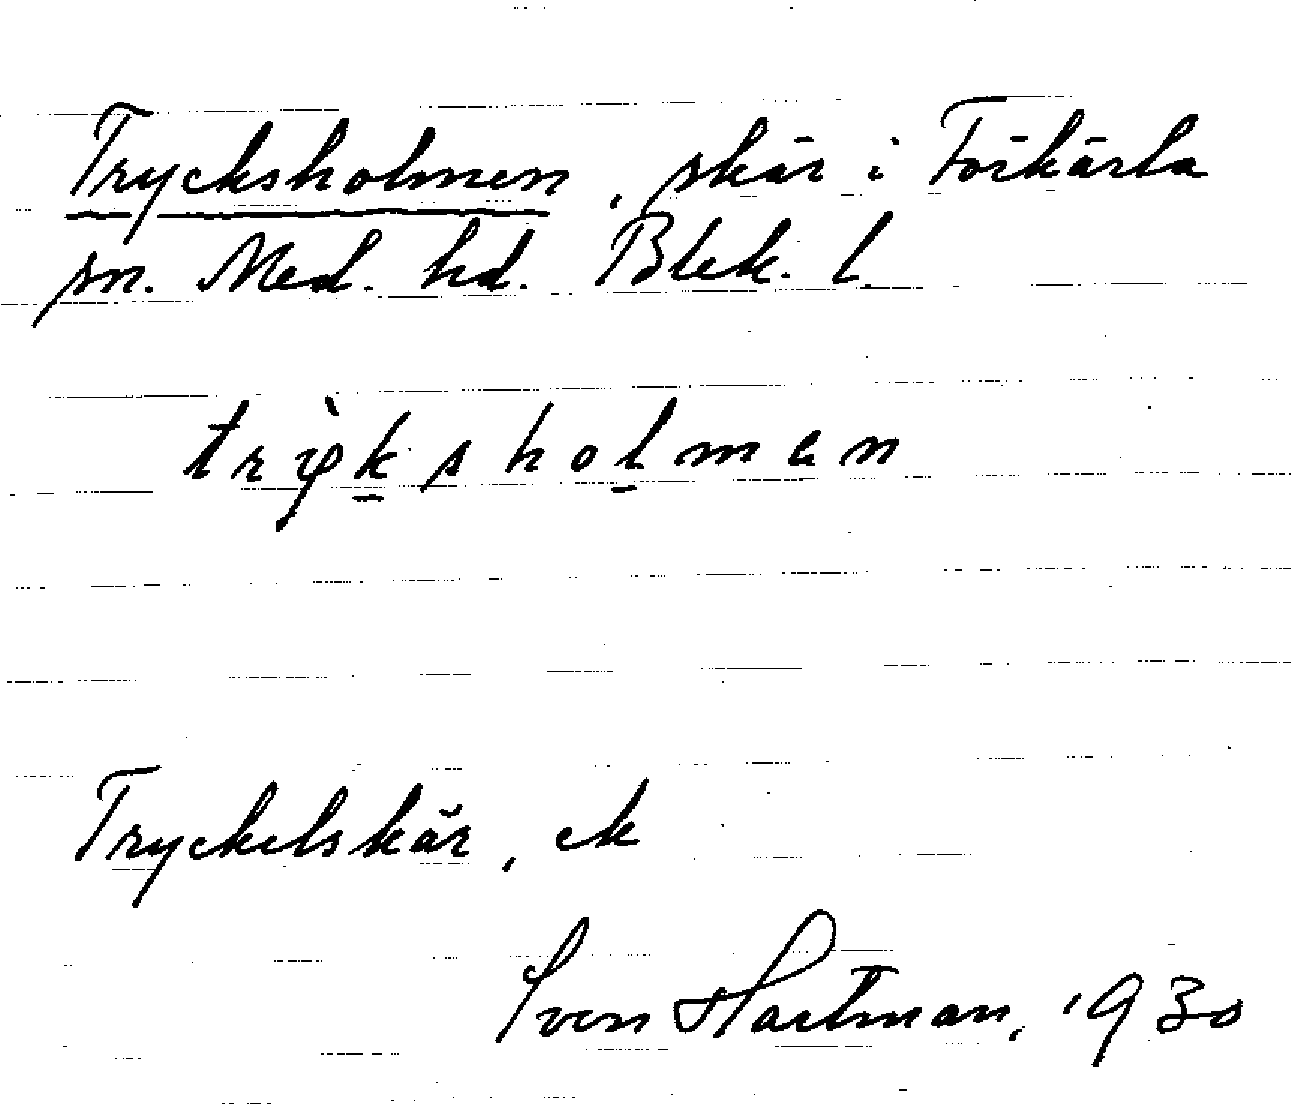 Trycksholmen, skär i Förkärla
sn. Med. hd. Blek. l.
trỳk̲shol̲men
Tryckelskär, ek
Sven Hartman, 1930